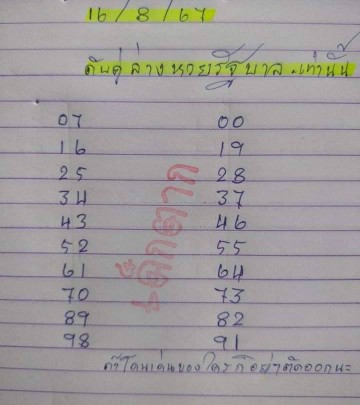 16/8/67
ดับคู่ล่างหวยรัฐบาล เท่านั้น
07 00
16 19
25 28
34 37
43 46
52 55
61 64
70 73
89 82
98 91
ถ้าโดนเด่นของใครก็อย่าตัดออกนะ